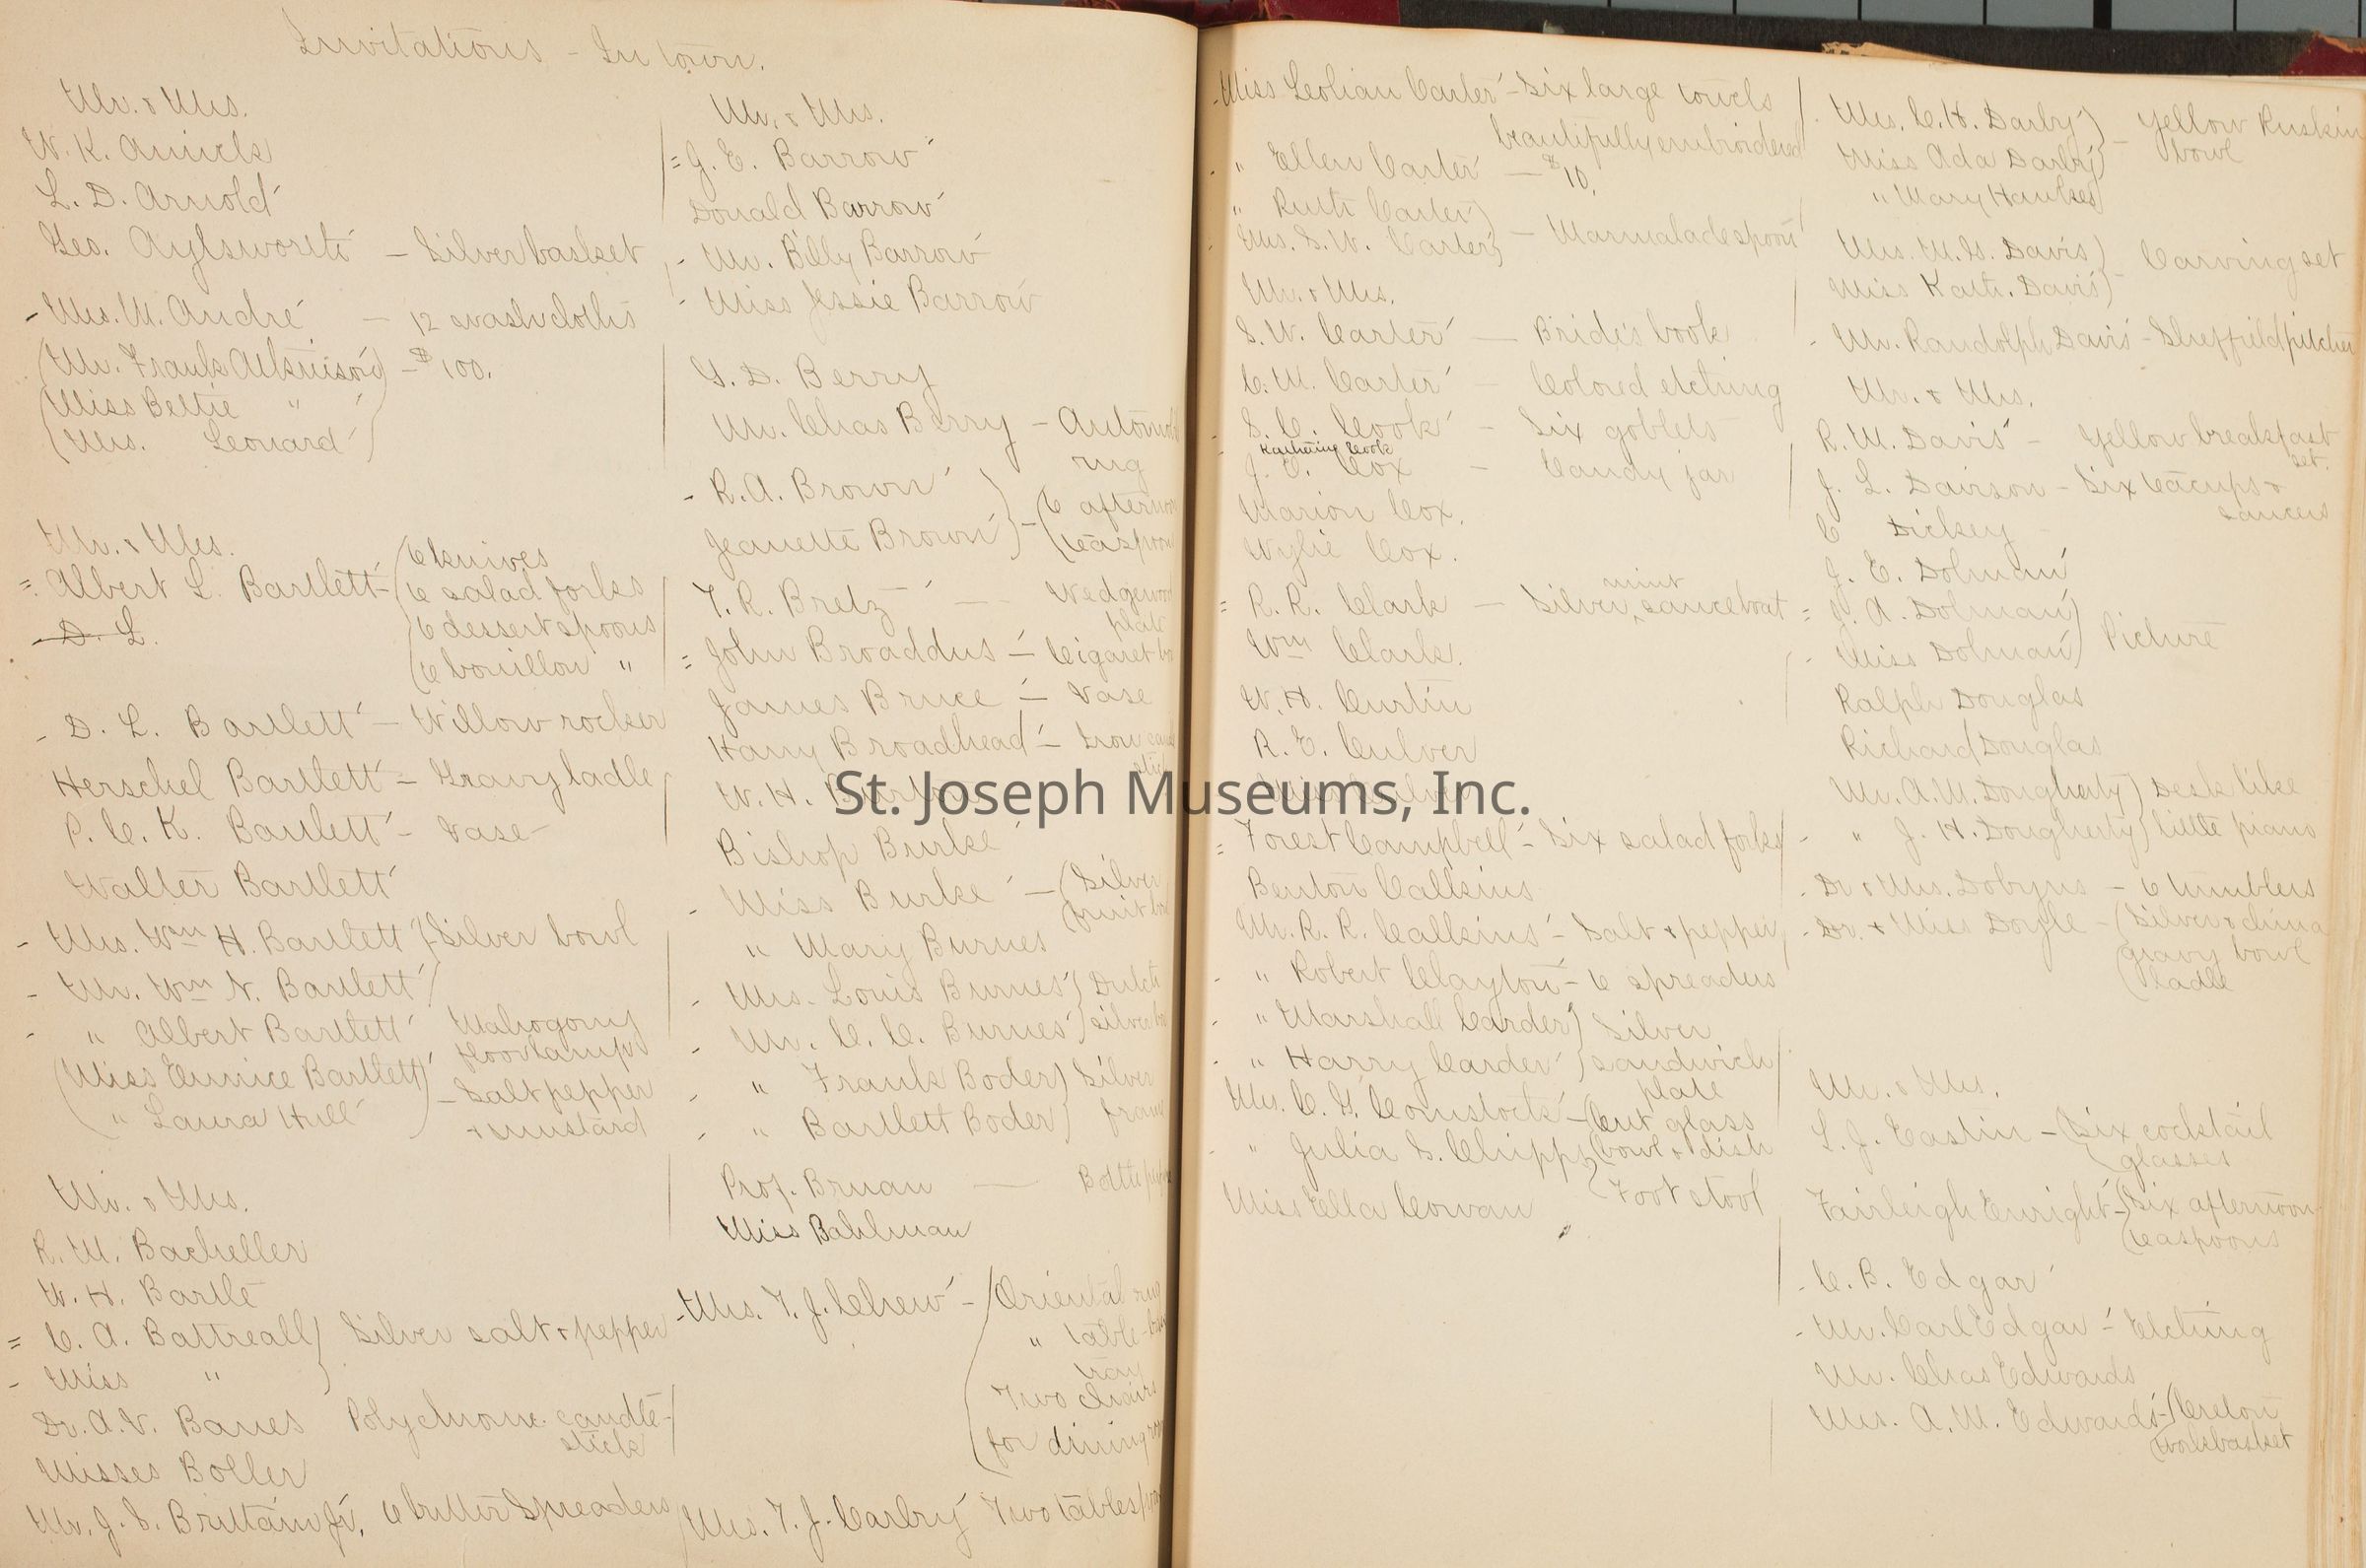 Invitations - In town.
Mr. & Mrs.
W. K. Amick
L. D. Arnold
Geo. Aylsworth - Silver basket
- Mrs. M. André - 12 washcloths
(Mr. Frank Atkinson) - $100.
(Miss Bettie "
(Mrs. Leonard
Mr. & Mrs.
= Albert L. Bartlett - (6 knives
(6 salad forks
(6 dessert spoons
(6 bouillon "
D. L.
- D. L. Bartlett - Willow rocker
Herschel Bartlett - Gravy ladle
P. C. K. Bartlett - Vase
Walter Bartlett
- Mrs. Wm H. Bartlett } Silver bowl
- Mr. Wm N. Bartlett
- " Albert Bartlett Mahogony
floor lamp
(Miss Eunice Bartlett) - Salt pepper
(" Laura Hull + mustard
Mr. & Mrs.
R. M. Bacheller
W. H. Bartle
= C. A. Battreall } Silver salt + pepper
- Miss "
Dr. A. V. Banes Polychrome candle-
stick
Misses Boller
Mr. J. S. Brittain Jr. 6 butter Spreaders
Mr. & Mrs.
= J. E. Barrow
Donald Barrow
- Mr. Billy Barrow
- Miss Jessie Barrow
G. D. Berry
Mr. Chas Berry -
rug
- R. A. Brown } - (6
Jeanette Brown
T. R. Bretz -
= John Broaddus -
James Bruce - Vase
Harry Broadhead -
W. H.
Bishop Burke
- Miss Burke - (Silver
" Mary Burnes
- Mrs. Louis Burnes } Dutch
- Mr. C. C. Burnes } silver
- " Frank Boder } Silver
- " Bartlett Boder }
Prof. Bruan -
Miss Bahlman
- Mrs. T. J. Chew - (Oriental rug
" table
tray
Two chairs
(for dining
Mrs. T. J. Carbry Two tables
- Miss Leolian Carter - Six large towels
beautifully embroidered
- " Ellen Carter - $10.
" Ruth Carter }
- Mrs. S. W. Carter } - Marmalade spoon
Mr. & Mrs.
S. W. Carter - Bride's book
C. M. Carter - Colored etching
- S. C. Cook - Six goblets
Katherine Cook
J. C. Cox - Candy jar
Marion Cox.
Wylie Cox.
= R. R. Clark - Silver mint sauceboat
Wm Clark.
W. H. Curtin
R. E. Culver
= Forest Campbell - Six salad forks
Benton Calkins
Mr. R. R. Calkins - Salt + pepper
- " Robert Clayton - 6 spreaders
- " Marshall Carder } Silver
- " Harry Carder } sandwich
plate
Mrs. C. G. Comstock - (Cut glass
(bowl + dish
- " Julia S. Chipps
(Foot stool
Miss Ella Cowan
- Mrs. C. H. Darby } - Yellow Ruskin
Miss Ada Darby } bowl
" Mary Hawkes }
Mrs. M. G. Davis } - Carving set
Miss Kath. Davis }
- Mr. Randolph Davis - Sheffield pitcher
Mr. & Mrs.
R. M. Davis - Yellow breakfast
set.
J. L. Davison - Six teacups +
saucers
C Dickey
J. E. Dolman
= J. A. Dolman } Picture
- Miss Dolman }
Ralph Douglas
Richard Douglas
Mr. A. M. Dougherty } Desk like
- " J. H. Dougherty } little piano
- Dr & Mrs. Dobyns - 6 tumblers
- Dr. & Miss Doyle - (Silver & china
(gravy bowl
(ladle
Mr. & Mrs.
L. J. Eastin - (Six cocktail
(glasses
Fairleigh Enright - (Six afternoon
(teaspoons
- C. B. Edgar
- Mr. Carl Edgar - Etching
Mr. Chas Edwards
Mrs. A. M. Edwards - (Creton
(workbasket
St. Joseph Museums, Inc.